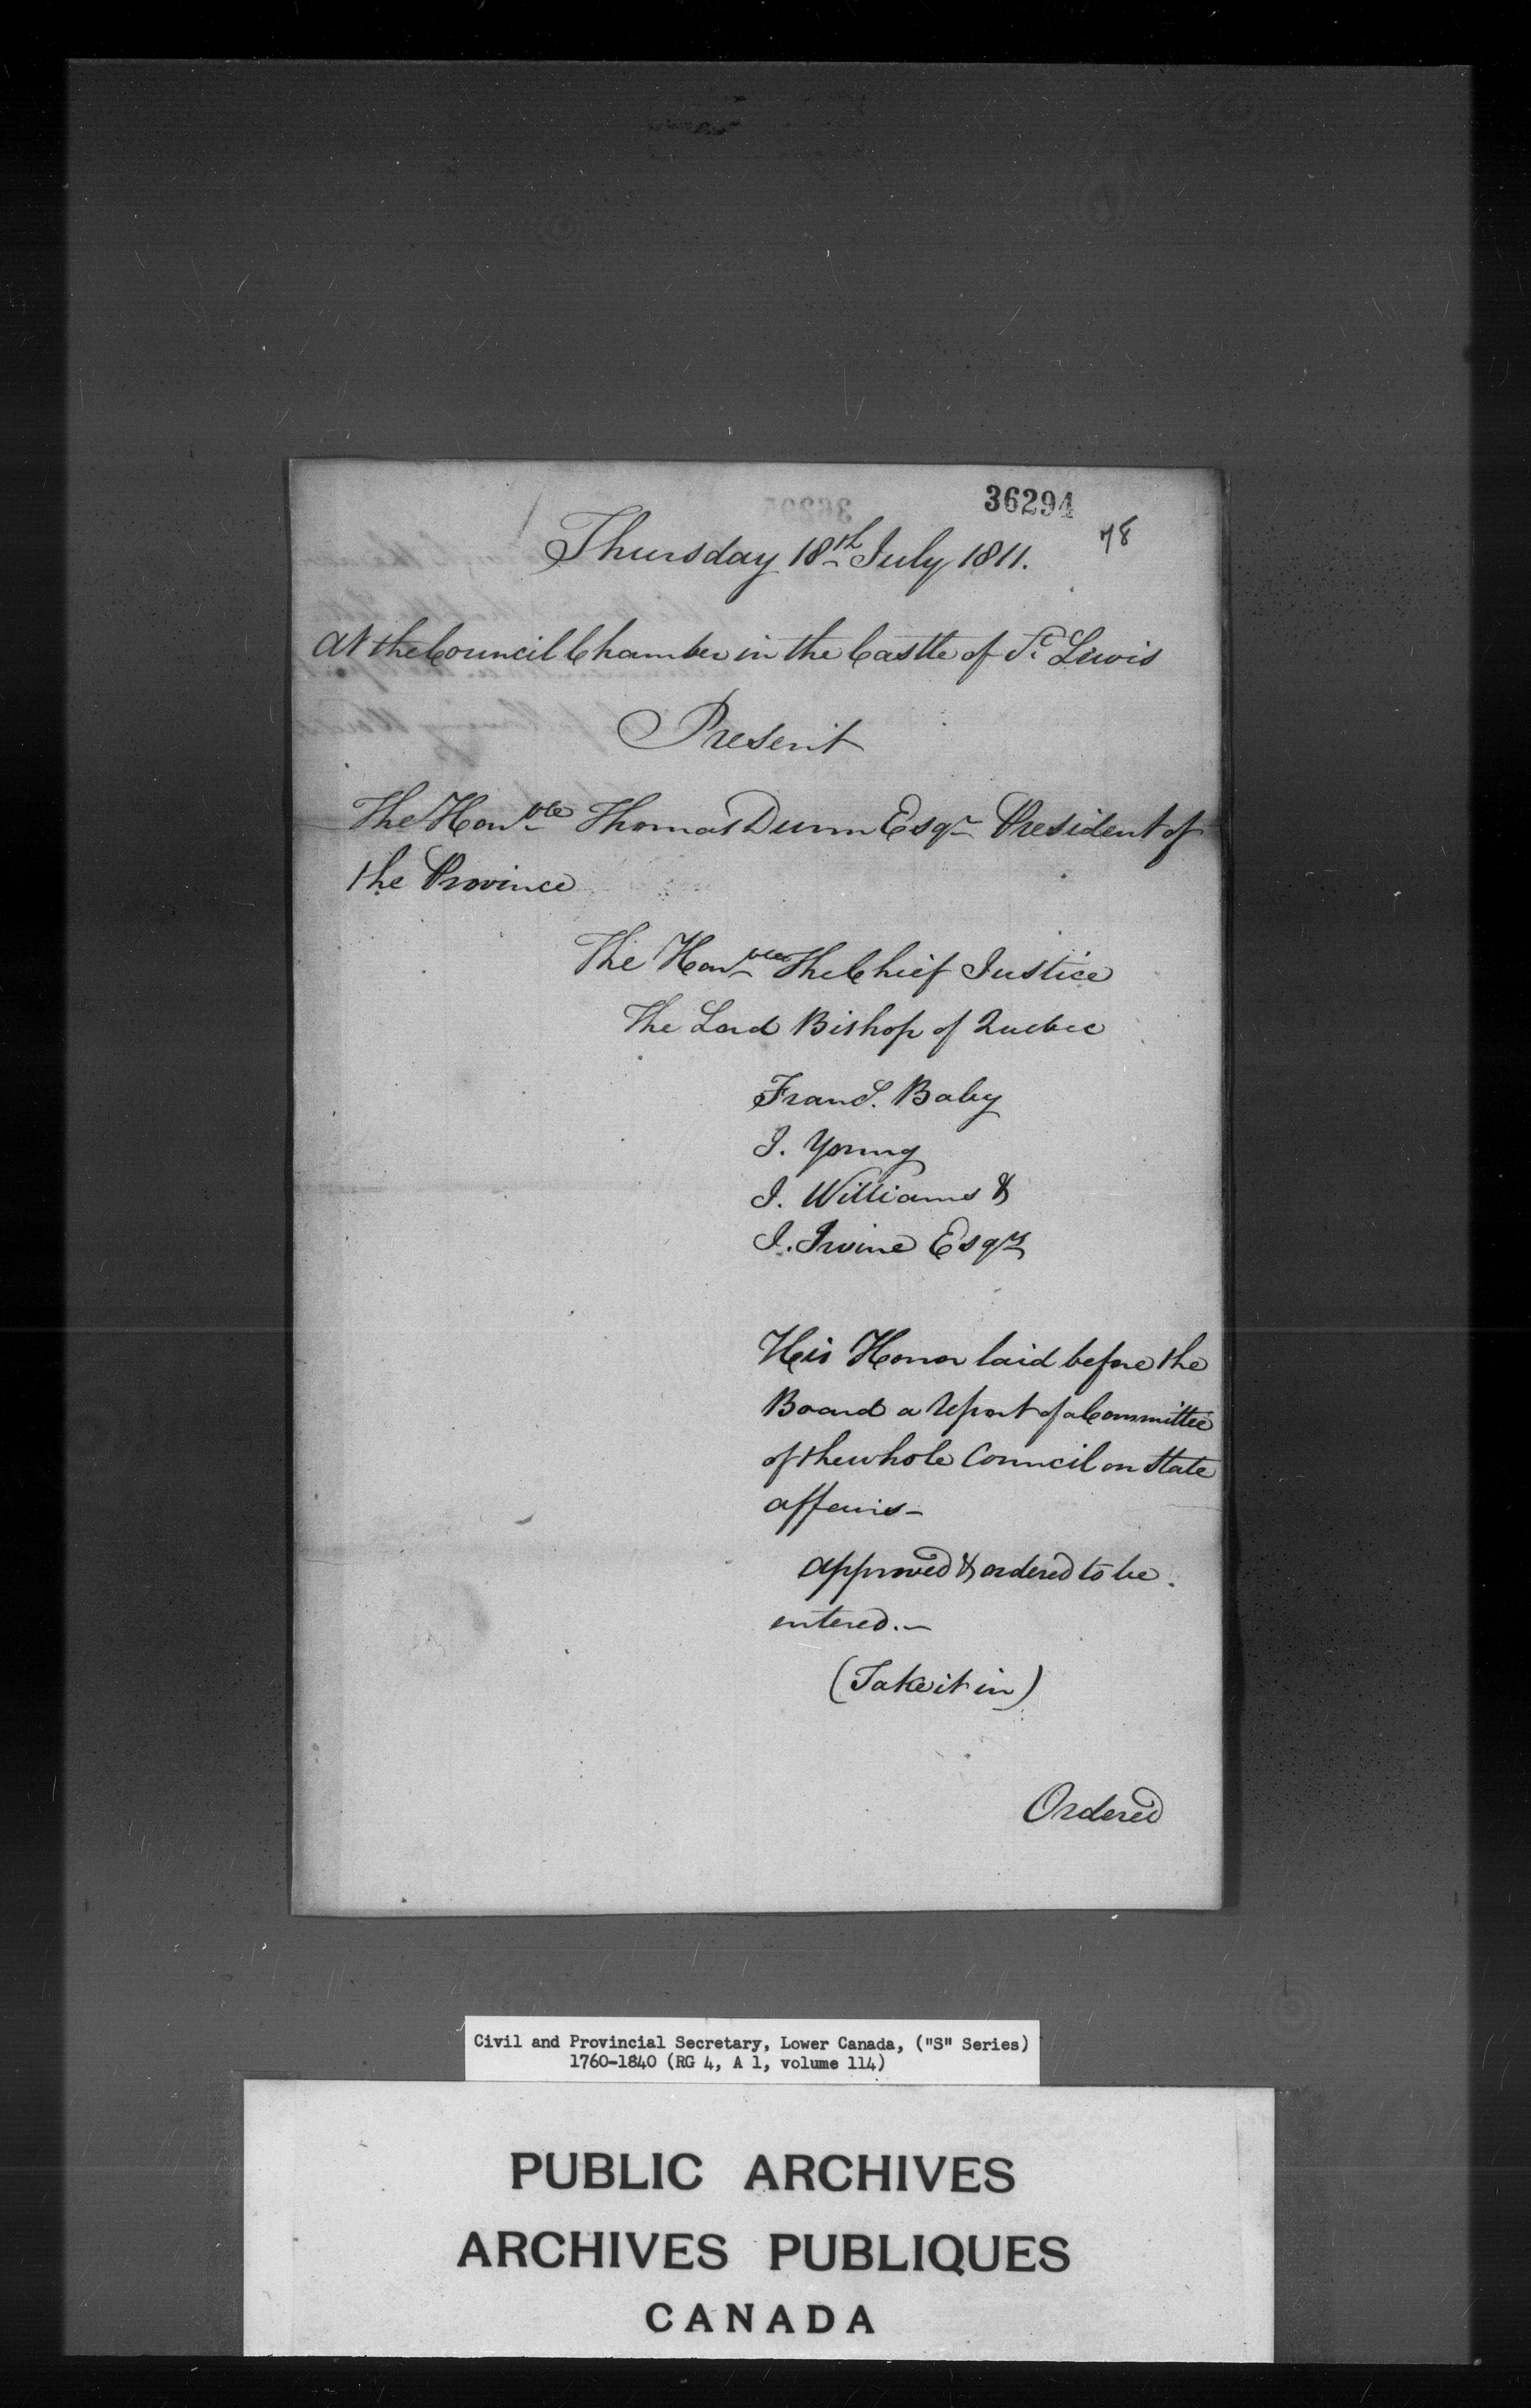 36294
78
Thursday 18th July 1811.
At the Council Chamber in the Castle of St. Lewis
Present
The Honble Thomas Dunn Esqr President of
the Province
The Honble The Chief Justice
The Lord Bishop of Quebec
Frans. Baby
J. Young
J. Williams &
J. Irvine Esqrs
His Honor laid before the
Board a report of a Committee
of the whole Council on State
affairs—
approved & ordered to be
entered.—
(Take it in)
Ordered
Civil and Provincial Secretary, Lower Canada, ("S" Series)
1760-1840 (RG 4, A 1, volume 114)
PUBLIC ARCHIVES
ARCHIVES PUBLIQUES
CANADA